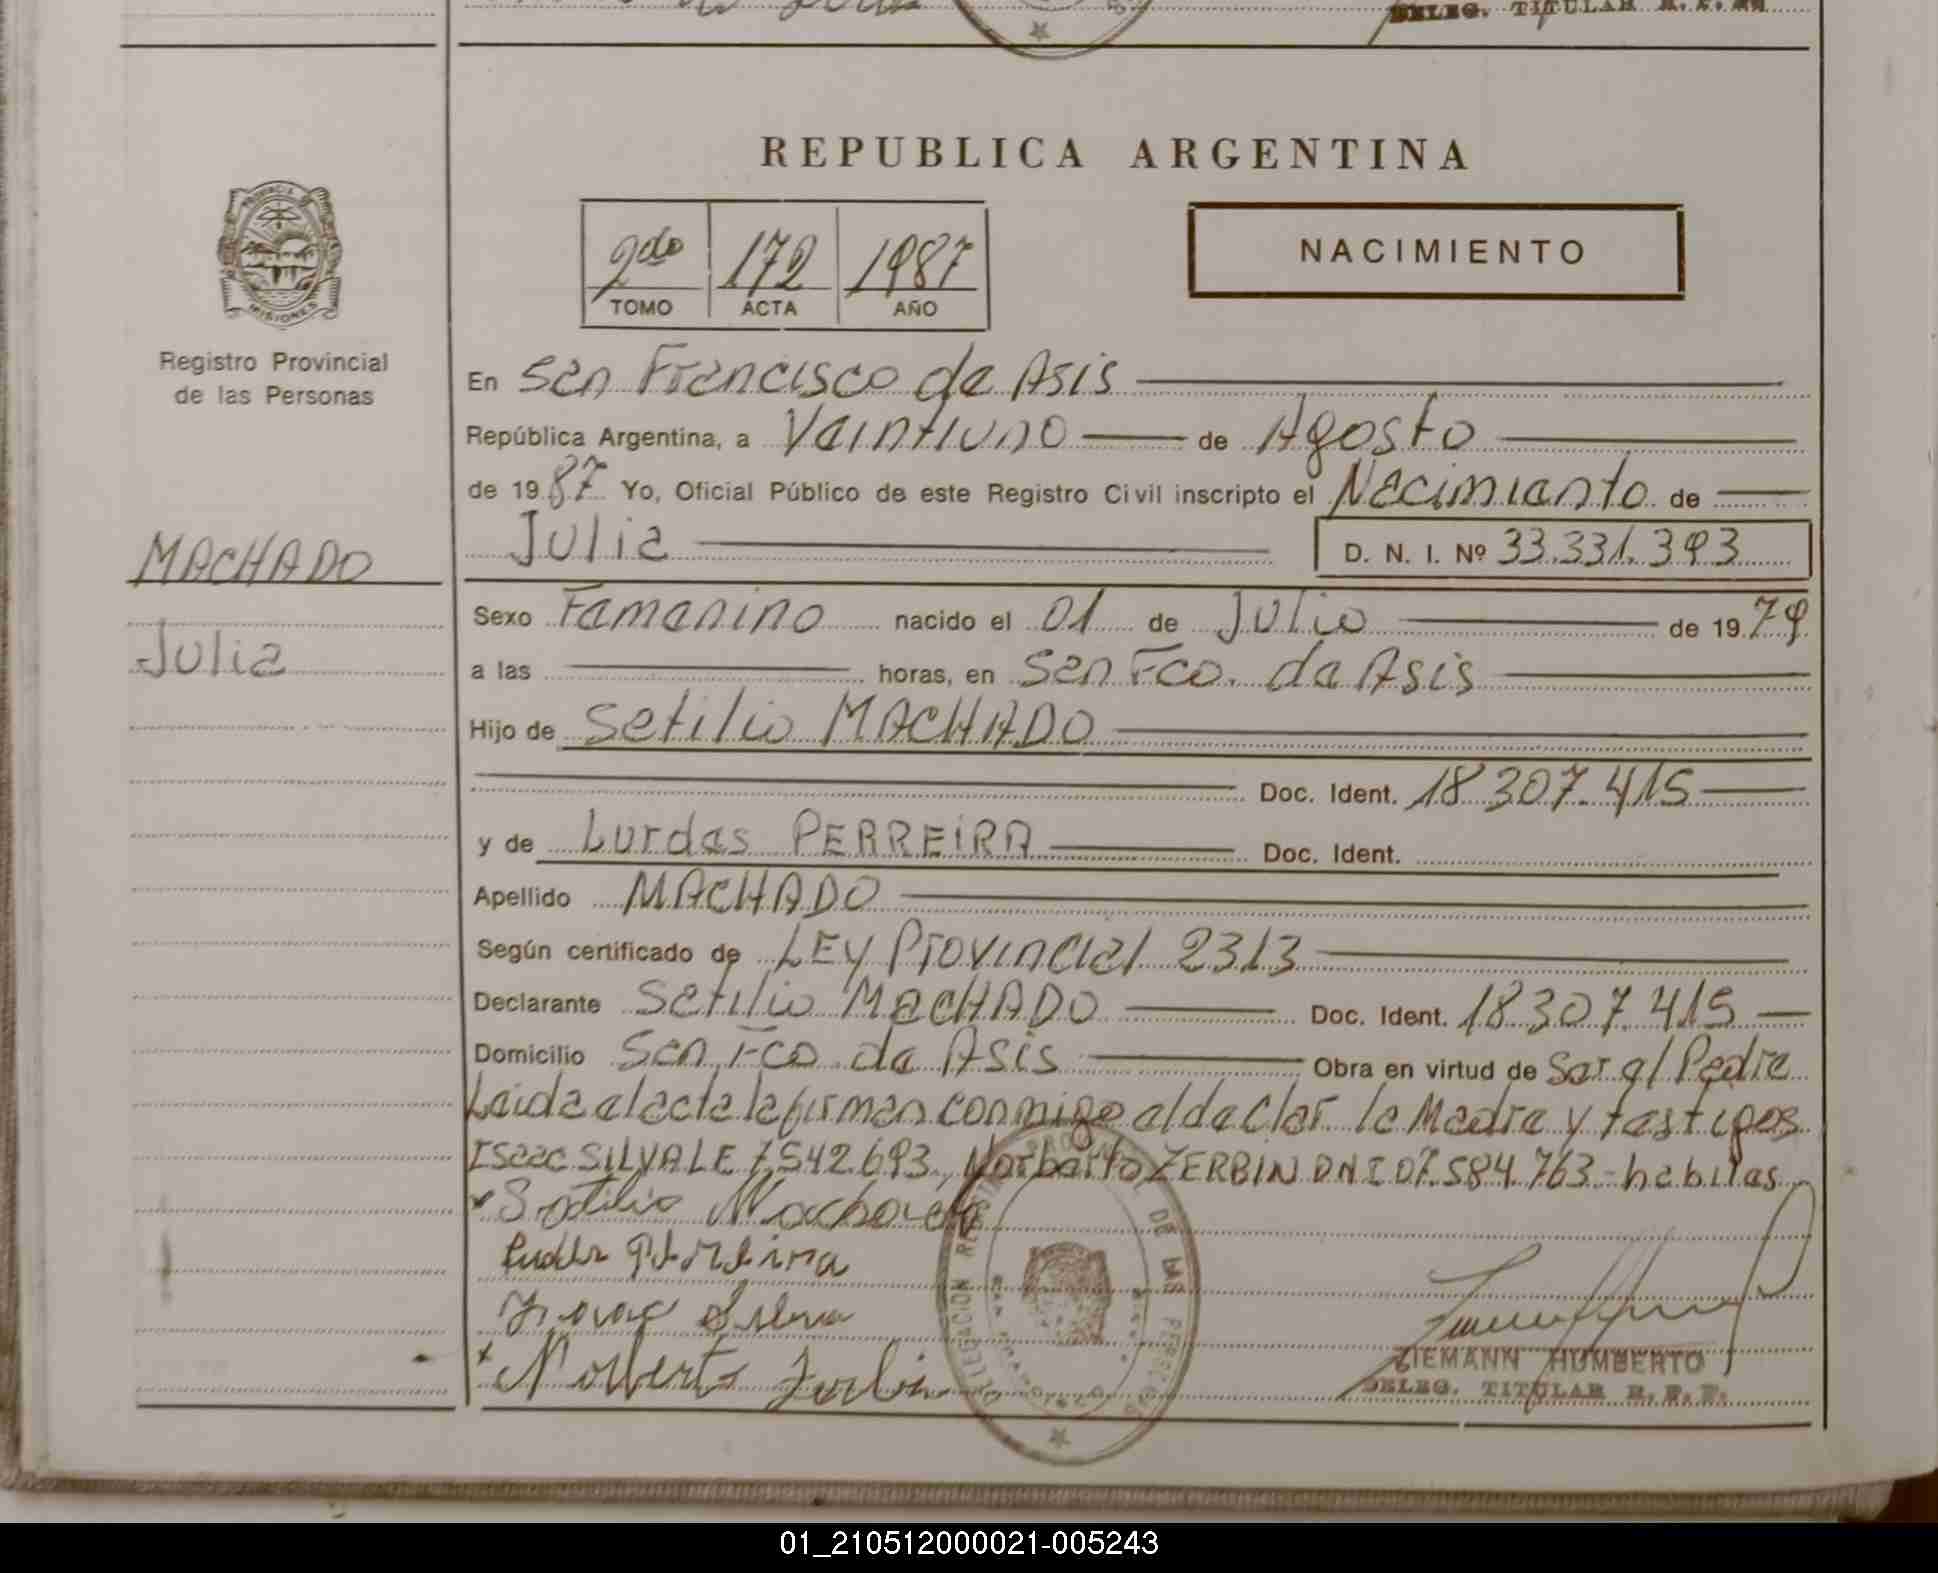 DELEG. TITULAR R. P. P.
REPUBLICA ARGENTINA
PROVINCIA
MISIONES
2do 172 1987
TOMO ACTA AÑO
NACIMIENTO
Registro Provincial
de las Personas
En San Francisco de Asis
República Argentina, a Veintiuno de Agosto
de 1987 Yo, Oficial Público de este Registro Civil inscripto el Nacimiento de
Julia D. N. I. Nº 33.331.393
MACHADO
Julia
Sexo Femenino nacido el 01 de Julio de 1979
a las horas, en San Fco. de Asis
Hijo de Setilio MACHADO
Doc. Ident. 18.307.415
y de Lurdes PERREIRA Doc. Ident.
Apellido MACHADO
Según certificado de LEy Provincial 2313
Declarante Setilio MACHADO Doc. Ident. 18.307.415
Domicilio San Fco de Asis Obra en virtud de Ser el Padre
Leida el acta la firman conmigo el declar. la Madre y testigos
Isaac SILVA LE 7.542.693, Norberto ZERBIN DNI 07.584.763-habiles
Sotilio Machado
Perleira
Silva
Norberto Zerbin
DELEGACION REGISTRO PROVINCIAL DE LAS PERSONAS
ZIEMANN HUMBERTO
DELEG. TITULAR R. P. P.
01_210512000021-005243